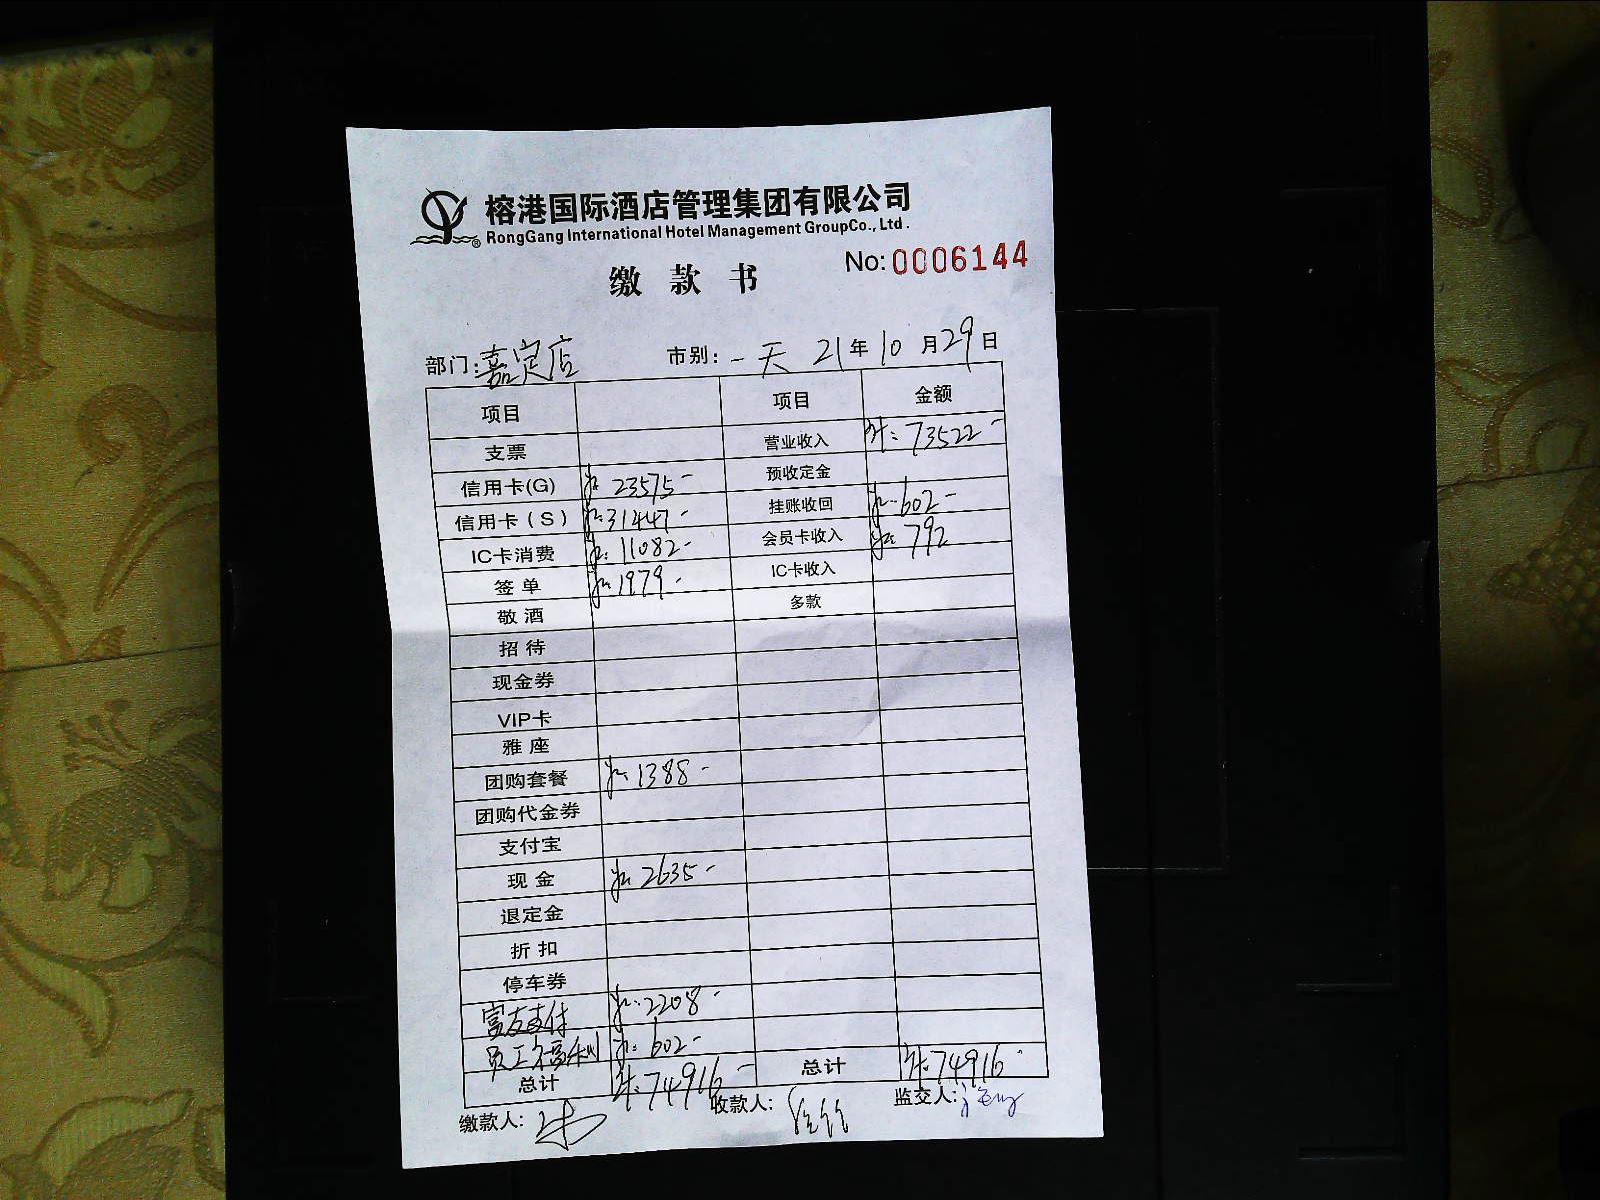 榕港国际酒店管理集团有限公司
RongGang International Hotel Management GroupCo., Ltd.
No: 0006144
缴款书
部门: 嘉定店 市别: 一天 21年10月29日
项目 项目 金额
支票 营业收入 73522-
信用卡(G) 23575- 预收定金
信用卡(S) 31447- 挂账收回 602-
IC卡消费 11082- 会员卡收入 792
签单 1979- IC卡收入
敬酒 多款
招待
现金券
VIP卡
雅座
团购套餐 1388-
团购代金券
支付宝
现金 2635-
退定金
折扣
停车券
富友支付 2208-
员工福利 602-
总计 74916- 总计 74916-
缴款人: 收款人: 监交人: